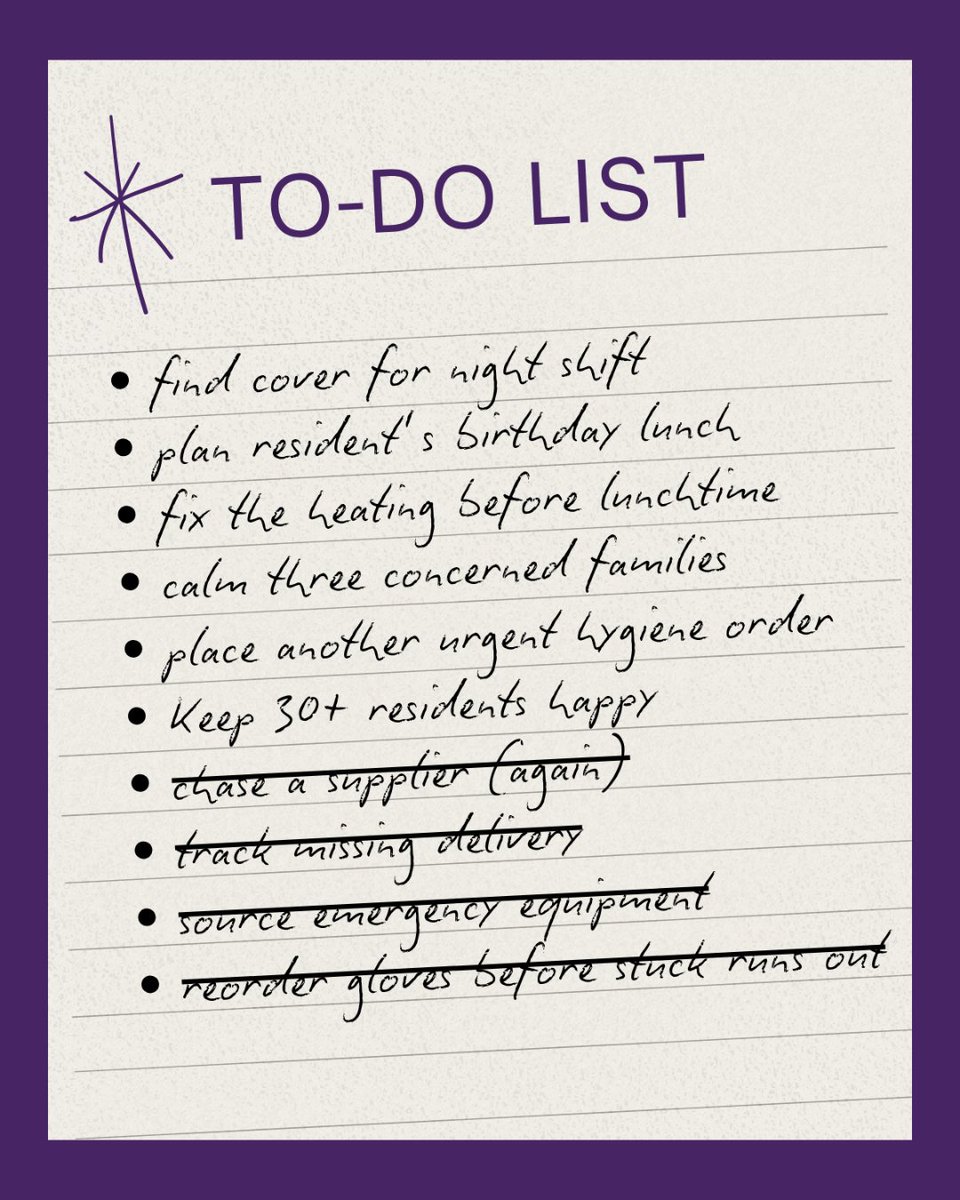 TO-DO LIST
• find cover for night shift
• plan resident's birthday lunch
• fix the heating before lunchtime
• calm three concerned families
• place another urgent hygiene order
• Keep 30+ residents happy
• chase a supplier (again)
• track missing delivery
• source emergency equipment
• reorder gloves before stuck runs out